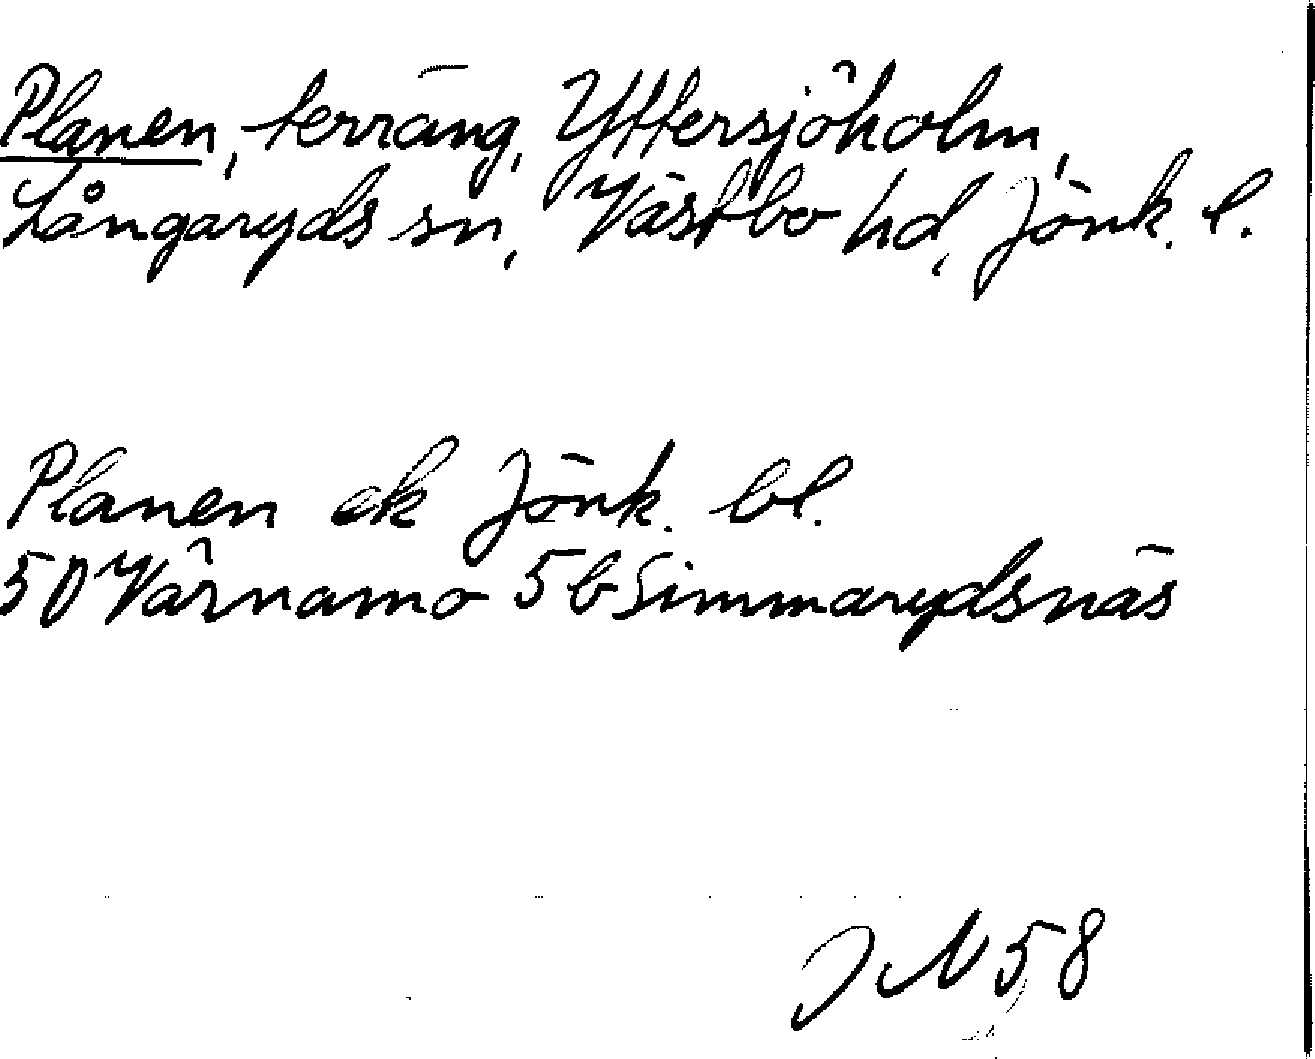 Planen, terräng, Yttersjöholm,
Långaryds sn, Västbo hd, Jönk. l.
Planen ek Jönk. bl.
5D Värnamo 5b Simmarydsnäs
JN 58